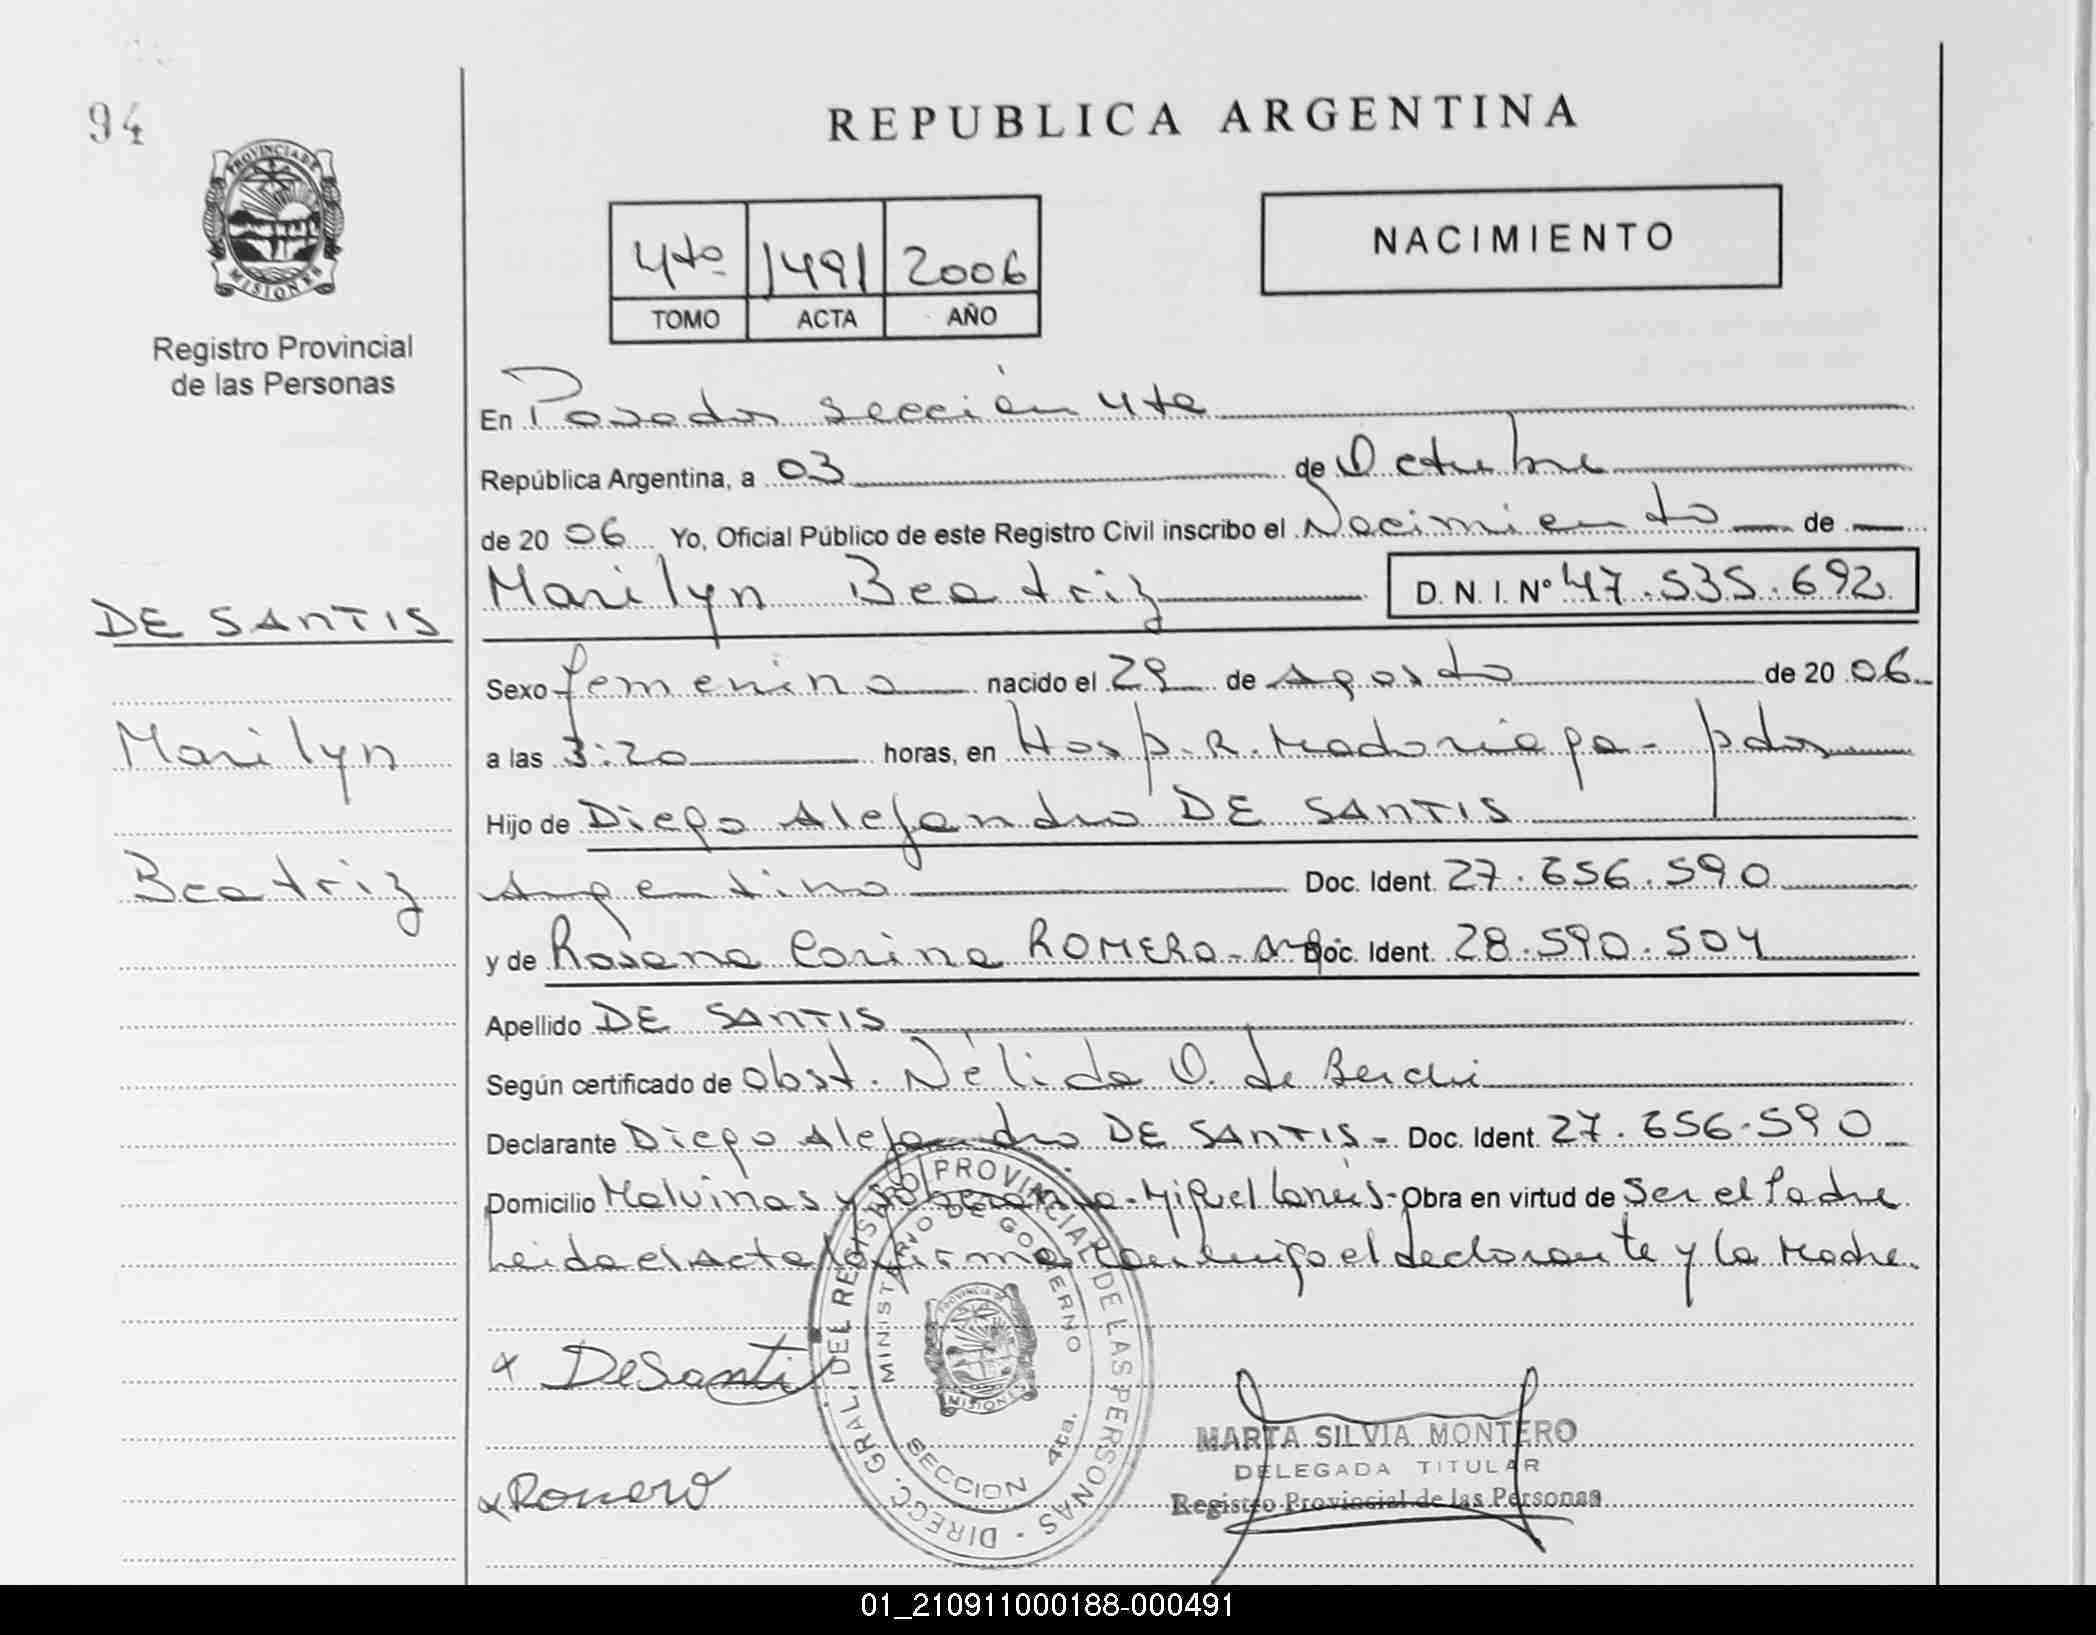 94
REPUBLICA ARGENTINA
PROVINCIA DE
MISIONES
Registro Provincial
de las Personas
4to 1491 2006
TOMO ACTA AÑO
NACIMIENTO
En Posadas sección 4ta
República Argentina, a 03 de Octubre
de 2006 Yo, Oficial Público de este Registro Civil inscribo el Nacimiento de
Marilyn Beatriz D.N.I.Nº 47.535.692
DE SANTIS
Sexo femenino nacido el 29 de Agosto de 2006
Marilyn
a las 3:20 horas, en Hosp. R. Madariaga - pdas
Hijo de Diego Alejandro DE SANTIS
Beatriz
Argentino Doc. Ident. 27.656.590
y de Rosana Carina ROMERO - Arg. Doc. Ident. 28.590.504
Apellido DE SANTIS
Según certificado de obst. Nélida O. de
Declarante Diego Alejandro DE SANTIS - Doc. Ident. 27.656.590
Domicilio Malvinas y Soberanía - Miguel Lanús - Obra en virtud de Ser el Padre
Leida el Acta la firma conmigo el declarante y la Madre.
DIRECC. GRAL. DEL REGISTRO PROVINCIAL DE LAS PERSONAS -
MINISTERIO DE GOBIERNO
PROVINCIA DE
MISIONES
SECCION 4ta.
x DeSanti
x Romero
MARTA SILVIA MONTERO
DELEGADA TITULAR
Registro Provincial de las Personas
01_210911000188-000491